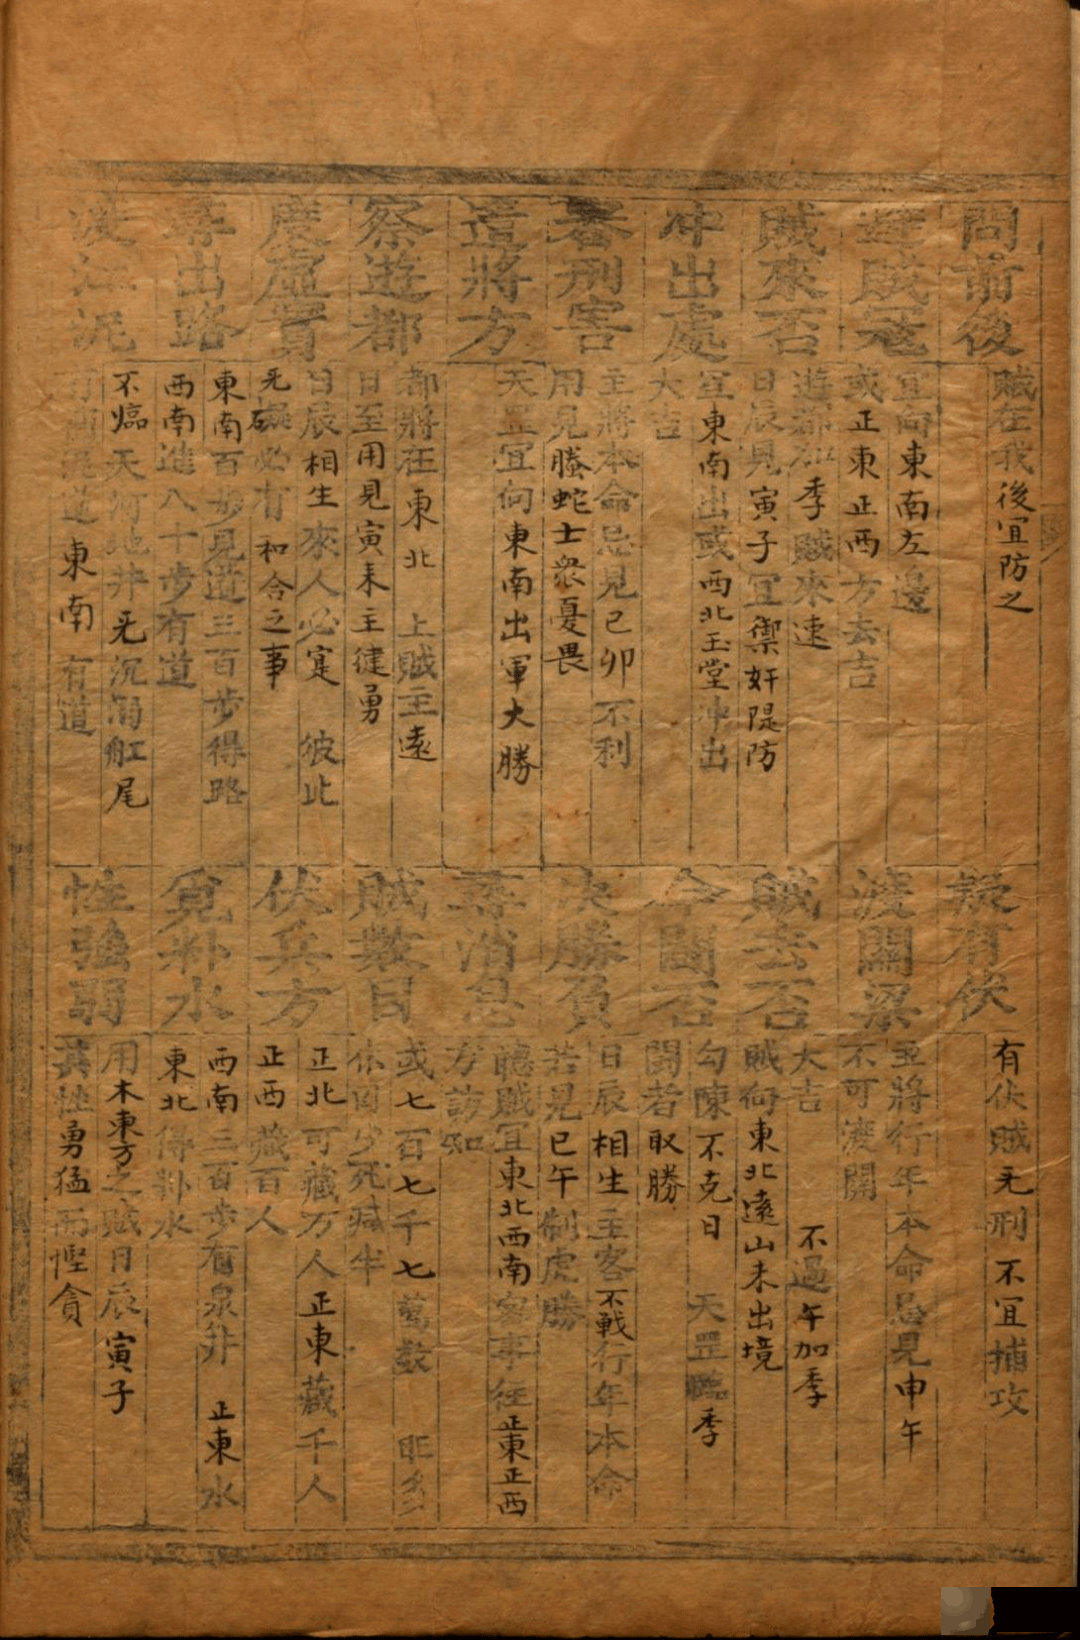 問前後
賊在我後宜防之
避賊冦
宜向東南左邊
或正東正西方去吉
賊來否
遊都加季賊來速
日辰見寅子宜禦奸隄防
冲出處
宜東南出或西北玉堂冲出
大吉
看刑害
主將本命忌見巳卯不利
用見螣蛇士衆憂畏
造將方
天罡宜向東南出軍大勝
察遊都
都將在東北 上賊主遠
日至用見寅未主健勇
度虛實
日辰相生來人必寔 彼此
无礙必有和合之事
尋出路
東南百步見道三百步得路
西南進八十步有道
渡江泥
不㿋天河地井无沉溺舡尾
道東南有道
疑有伏
有伏賊无刑不宜捕攻
渡關梁
主將行年本命忌見申午
不可渡關
賊去否
大吉 不過午加季
賊向東北遠山未出境
今鬪否
勾陳不克日 天罡臨季
鬪者取勝
决勝負
日辰相生主客不戰行年本命
若見巳午制虎勝
尋消息
聽賊宜東北西南客事往正東正西
方訪知
賊數目
或七百七千七萬数 旺多
休囚少死减半
伏兵方
正北可藏万人正東藏千人
正西藏百人
覓料水
西南三百步有泉井 正東水
東北得料水
性強弱
用木東方之賊日辰寅子
其性勇猛而慳貪